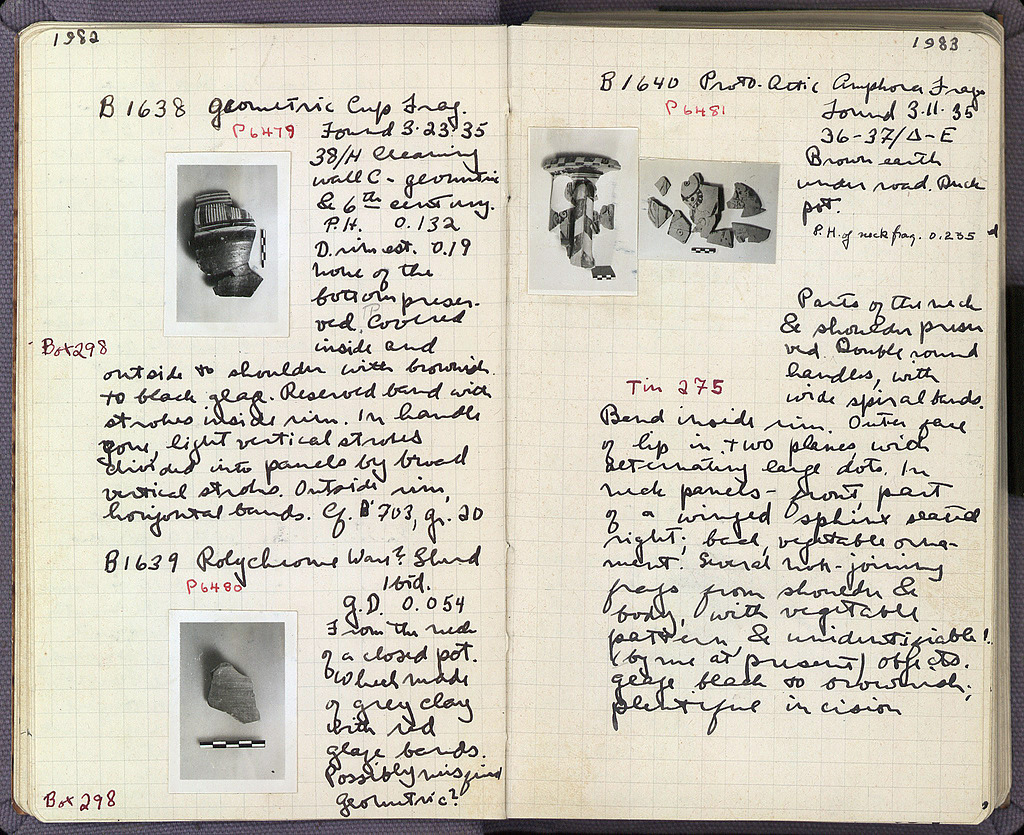 1982
B 1638 Geometric Cup Frag.
P6479
Found 3·23·35
38/H Cleaning
wall C - geometric
& 6th century.
P.H. 0.132
D. rim est. 0.19
None of the
bottom preser-
ved. Covered
inside and
Box 298
outside to shoulder with brownish
to black glaze. Reserved band with
strokes inside rim. In handle
zone, light vertical strokes
divided into panels by broad
vertical strokes. Outside rim,
horizontal bands. Cf. B 703, gr. 20
B1639 Polychrome Ware? Sherd
P6480
Ibid.
G.D. 0.054
From the neck
of a closed pot.
Wheel made
of grey clay
with red
glaze bands.
Possibly misfired
Geometric?
Box 298
1983
B 1640 Proto-Attic Amphora Frags
P6481
Found 3·11·35
36-37/Δ-E
Brown earth
under road. Duck
pot.
P.H. of neck frag. 0.235
Parts of the neck
& shoulder preser
ved. Double round
handles, with
wide spiral bands.
Tin 275
Band inside rim. Outer face
of lip in two planes with
alternating large dots. In
neck panels - front, part
of a winged sphinx seated
right; back, vegetable orna-
ment. Several non-joining
frags from shoulder &
body, with vegetable
pattern & unidentifiable!
(by me at present) objects.
Glaze black to brownish;
plentiful incision